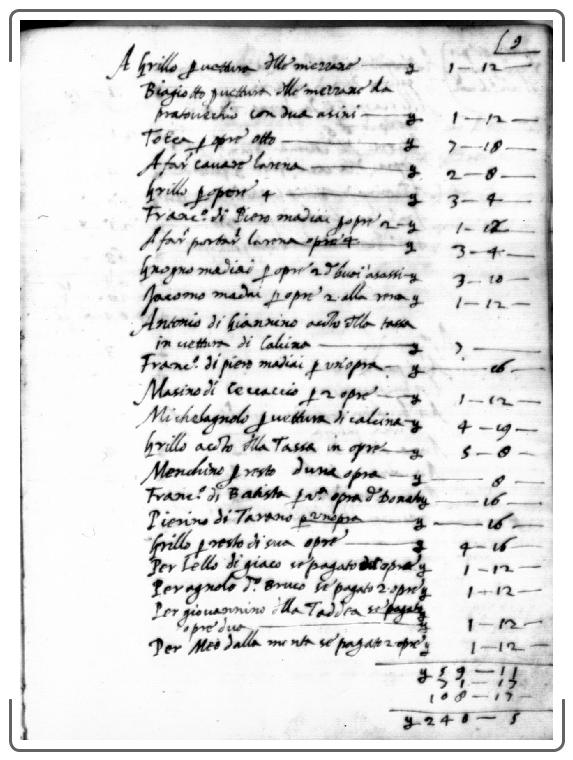 9
A Grillo p vettura delle mezzane — 1 — 12
Biagiotto p vettura delle mezzane da
pratovechio con dua asini — 1 — 12
p opre otto — 7 — 18
A far cavare larena — 2 — 8
Grillo p opere 4 — 3 — 4
Franc.º di Piero madiai p opre 2 — 1 — 12
A far portar larena opre 4 — 3 — 4
madiai p opre 2 d buoi — 3 — 10
Jacomo madiai p opre 2 alla rena — 1 — 12
Antonio di Giannino acōto della tassa
in vettura di Calcina — 7 —
Franc.º di piero madiai p un'opra — 16
Masino di Ceccaccio p 2 opre — 1 — 12
Michelagnolo p vettura di calcina — 4 — 19
Grillo acōto della Tassa in opre — 5 — 8
Menchino p resto duna opra — 8
Franc.º di Batista p opra — 16
Pierino di Tarano p unopra — 16
Grillo p resto di sua opre — 4 — 16
Per Lello di giaco se pagato opre — 1 — 12
Per agnolo d.º Bruco se pagato 2 opre — 1 — 12
Per giovannino della Taddea se pagato
opre dua — 1 — 12
Per Meo dalla menta se pagato 2 opre — 1 — 12
59 — 11
71 — 17
108 — 17
240 — 5